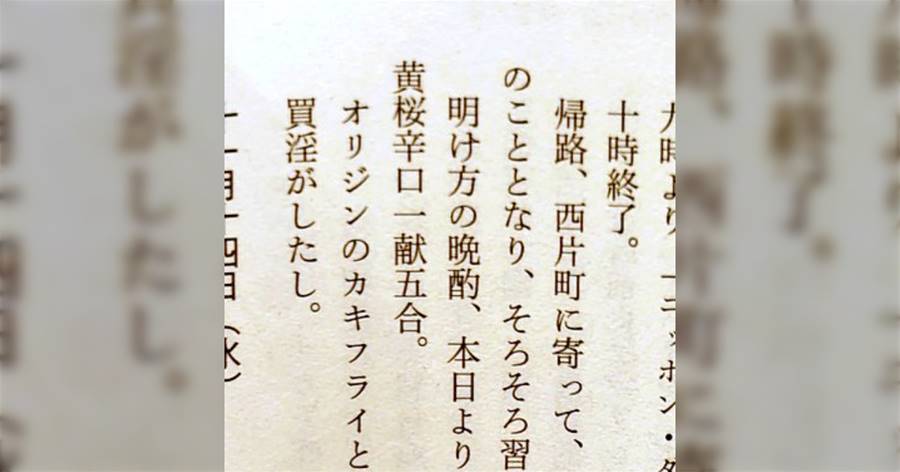 十時終了。
帰路、西片町に寄って、
のこととなり、そろそろ習
明け方の晩酌、本日より
黄桜辛口一献五合。
オリジンのカキフライと
買淫がしたし。
十一月十四日（水）